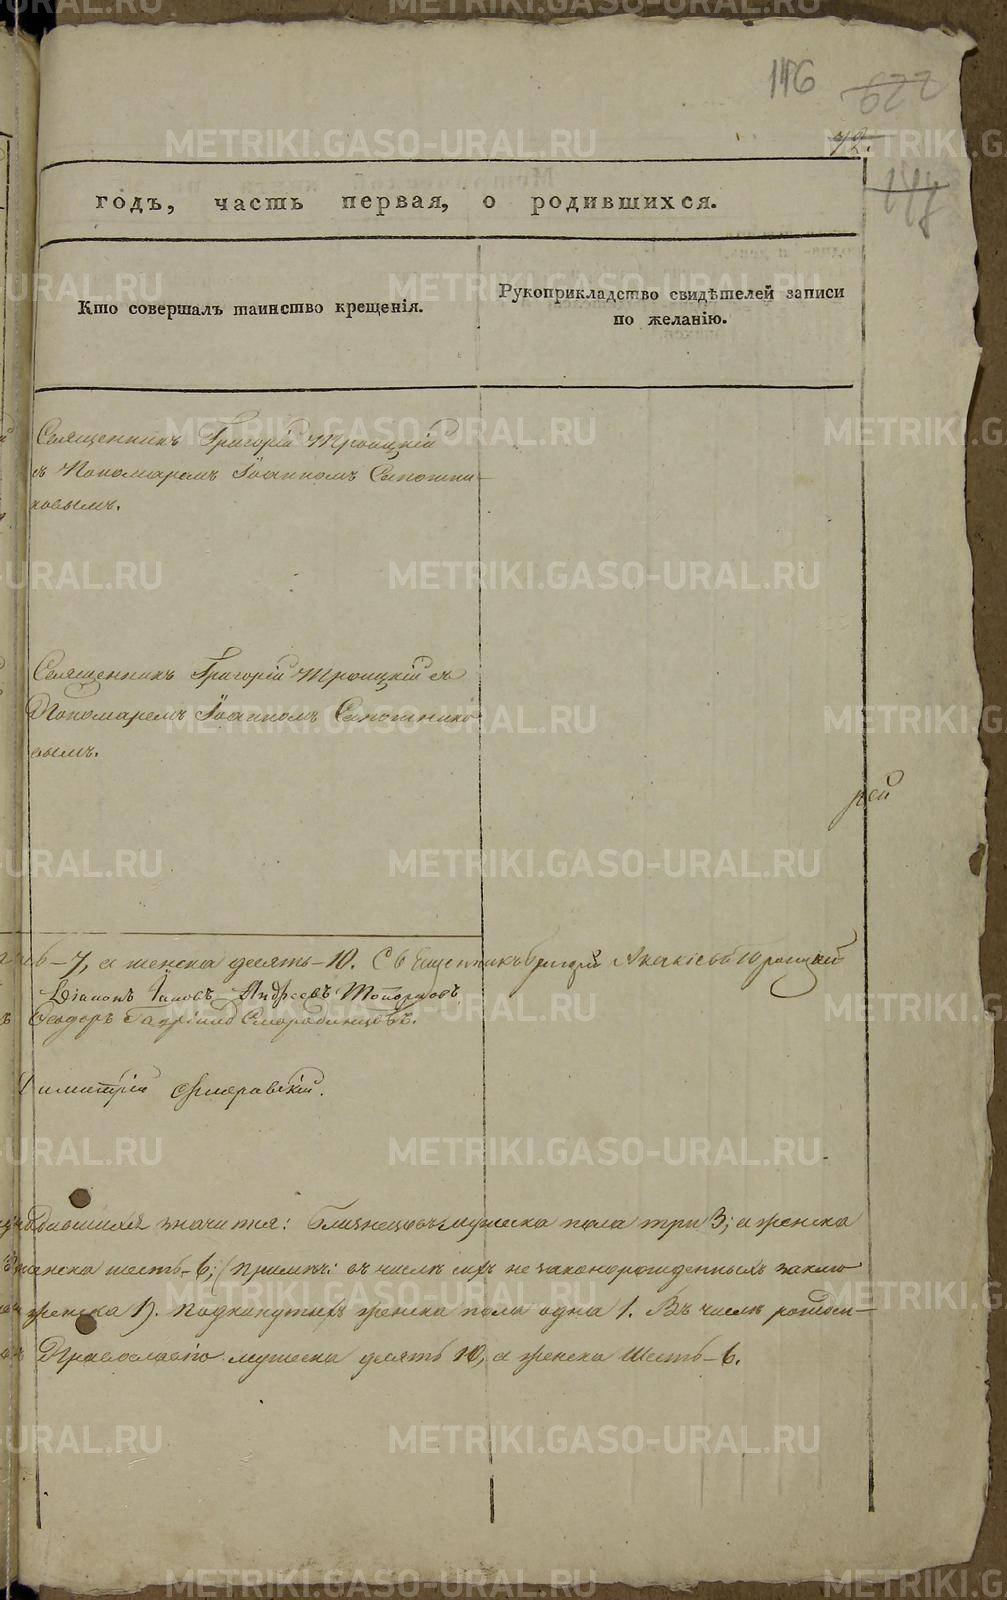 146 622
72.
147
годъ, часть первая, о родившихся.
Кто совершалъ таинство крещенія.
Рукоприкладство свидѣтелей записи
по желанію.
Священникъ Григорій Троицкій
съ Пономаремъ Іоанномъ Сапожни-
ковымъ.
Священникъ Григорій Троицкій съ
Пономаремъ Іоанномъ Сапожнико
вымъ.
рей
7, а женска десять - 10. Священникъ Григорій Троицкій
Діаконъ Іаковъ Андреевъ Топорковъ
Гавріилъ Смородинцовъ.
Димитрій
значится: близнецовъ мужеска пола три 3; а женска
шесть - 6; (примѣч: въ числѣ ихъ незаконорожденныхъ
женска 1). подкинутыхъ женска пола одна 1. Въ числѣ
Православію мужеска десять 10, а женска шесть - 6.
METRIKI.GASO-URAL.RU